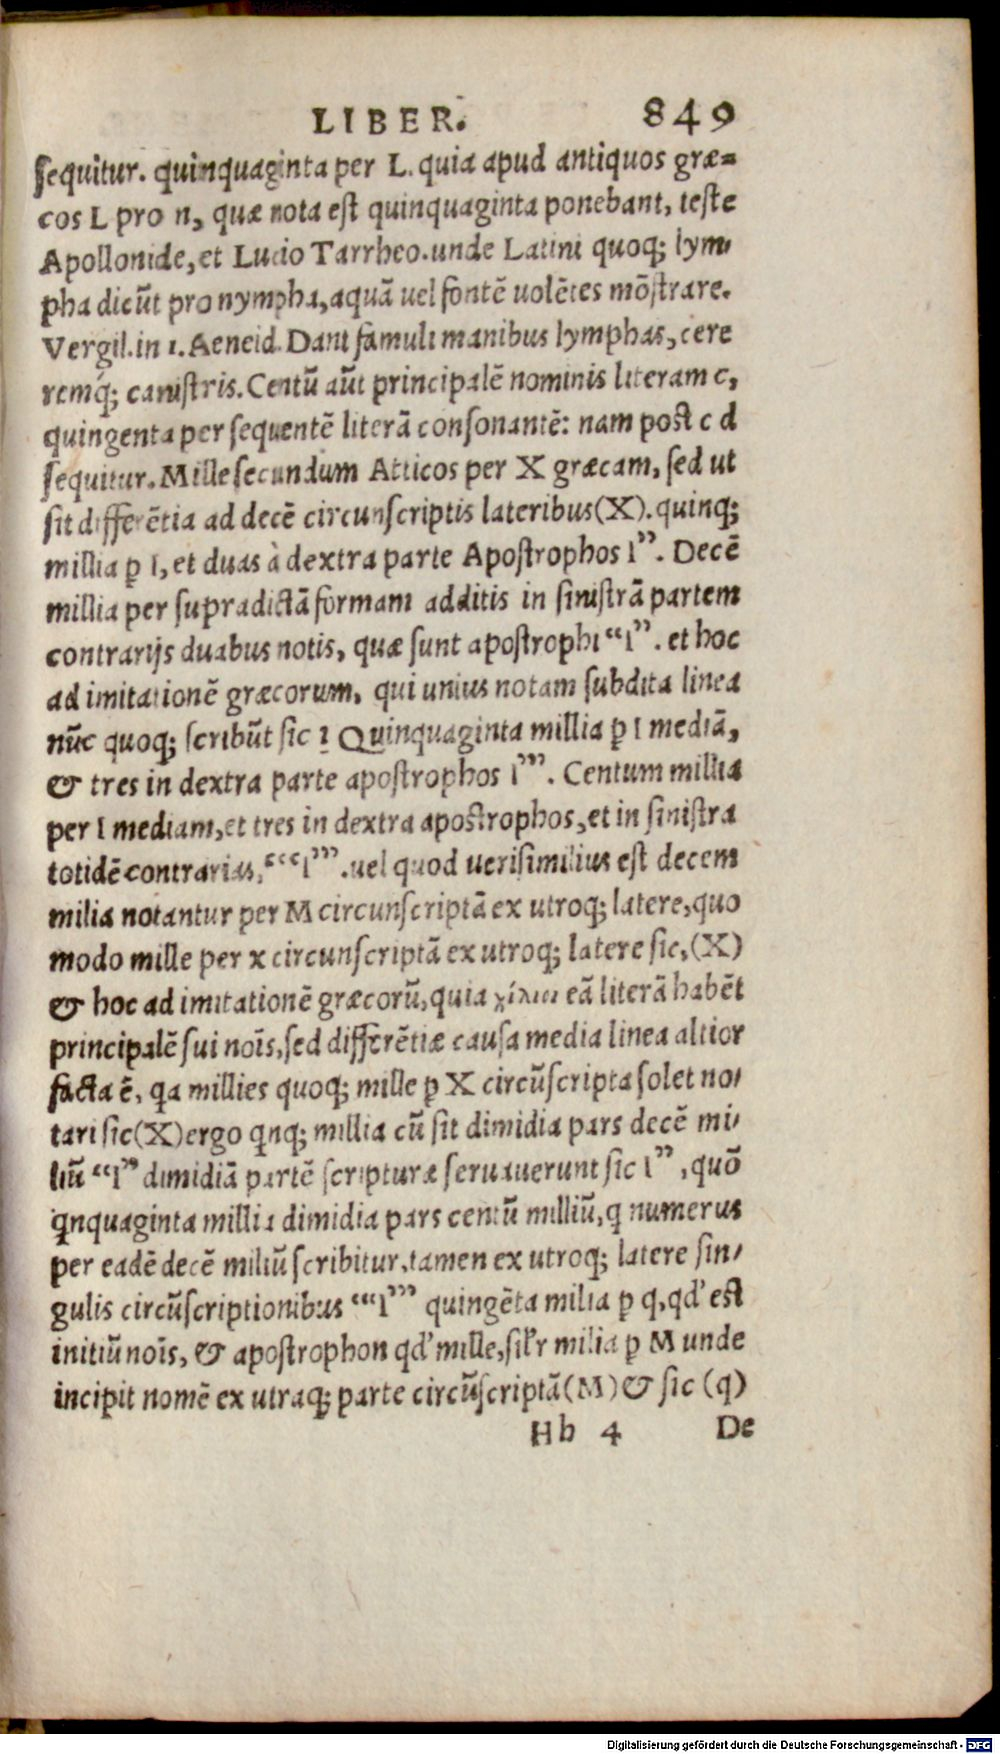 LIBER. 849
ſequitur. quinquaginta per L. quia apud antiquos græ=
cos L pro n, quæ nota eſt quinquaginta ponebant, teſte
Apollonide, et Lucio Tarrheo. unde Latini quoq; lym,
pha dicūt pro nympha, aquā uel fontē uolētes mōſtrare.
Vergil. in 1. Aeneid. Dant famuli manibus lymphas, cere
remq́; caniſtris. Centū aūt principalē nominis literam c,
quingenta per ſequentē literā conſonantē: nam post c d
ſequitur. Mille ſecundum Atticos per X græcam, ſed ut
ſit differētia ad decē circunſcriptis lateribus (X). quinq;
millia ꝑ I, et duas à dextra parte Apoſtrophos I”. Decē
millia per ſupradictā formam additis in ſiniſtrā partem
contrarijs duabus notis, quæ ſunt apoſtrophi “I”. et hoc
ad imitationē græcorum, qui unius notam ſubdita linea
nūc quoq; ſcribūt ſic ı̱ Quinquaginta millia ꝑ I mediā,
& tres in dextra parte apoſtrophos I”’. Centum millia
per I mediam, et tres in dextra apoſtrophos, et in ſiniſtra
totidē contrarias, “‘I”’. uel quod ueriſimilius eſt decem
milia notantur per M circunſcriptā ex utroq; latere, quo
modo mille per x circunſcriptā ex utroq; latere ſic, (X)
& hoc ad imitationē græcorū, quia χίλια eā literā habēt
principalē ſui noīs, ſed differētiæ cauſa media linea altior
facta ē, qa millies quoq; mille ꝑ X circūſcripta ſolet no,
tari ſic (X) ergo qnq; millia cū ſit dimidia pars decē mi,
liū “I” dimidiā partē ſcripturæ ſeruauerunt ſic I”, quō
qnquaginta millia dimidia pars centū milliū, q numerus
per eadē decē miliū ſcribitur, tamen ex utroq; latere ſin,
gulis circūſcriptionibus “‘I”’ quingēta milia ꝑ q, qd’ est
initiū noīs, & apoſtrophon qd’ mille, ſil’r milia ꝑ M unde
incipit nomē ex utraq; parte circūſcriptā (M) & ſic (q)
Hb 4 De
Digitalisierung gefördert durch die Deutsche Forschungsgemeinschaft - DFG